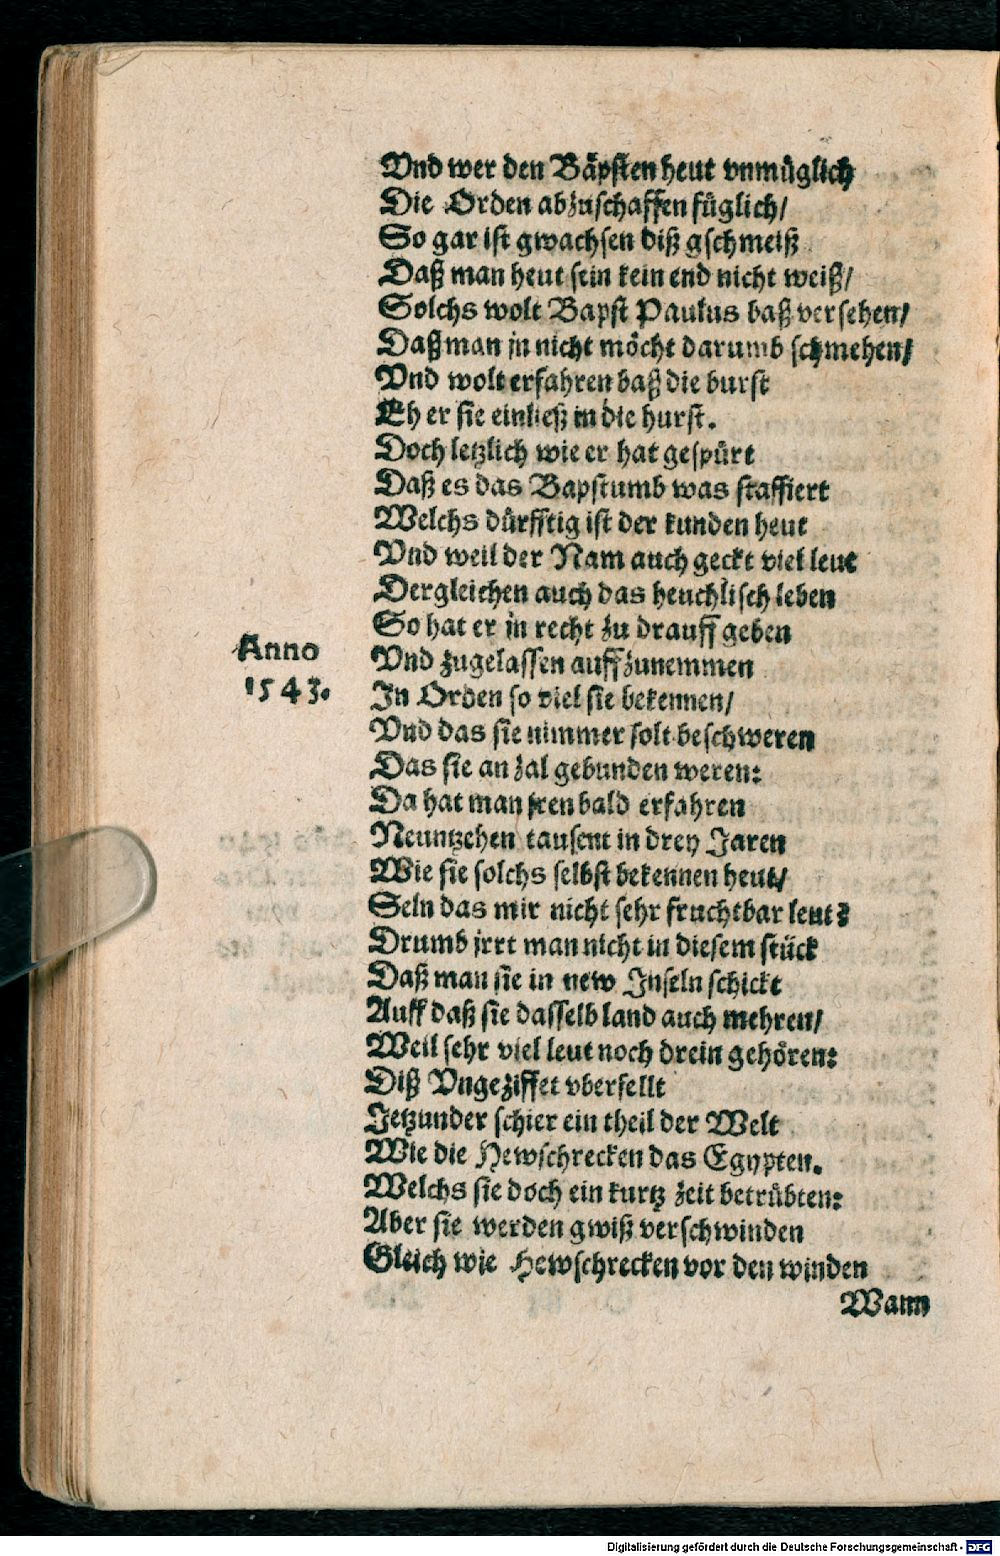 Vnd wer den Bäpsten heut vnmüglich
Die Orden abzuschaffen füglich/
So gar ist gwachsen diß gschmeiß
Daß man heut sein kein end nicht weiß/
Solchs wolt Bapst Paulus baß versehen/
Daß man jn nicht möcht darumb schmehen/
Vnd wolt erfahren baß die burst
Eh er sie einließ in die hurst.
Doch letzlich wie er hat gespürt
Daß es das Bapstumb was staffiert
Welchs dürfftig ist der kunden heut
Vnd weil der Nam auch geckt viel leut
Dergleichen auch das heuchlisch leben
So hat er jn recht zu drauff geben
Anno
1543.
Vnd zugelassen auffzunemmen
In Orden so viel sie bekennen/
Vnd das sie nimmer solt beschweren
Das sie an zal gebunden weren:
Da hat man jren bald erfahren
Neuntzehen tausent in drey Jaren
Wie sie solchs selbst bekennen heut/
Seln das mir nicht sehr fruchtbar leut?
Drumb jrrt man nicht in diesem stück
Daß man sie in new Inseln schickt
Auff daß sie dasselb land auch mehren/
Weil sehr viel leut noch drein gehören:
Diß Vngeziffet vberfellt
Jetzunder schier ein theil der Welt
Wie die Hewschrecken das Egypten.
Welchs sie doch ein kurtz zeit betrübten:
Aber sie werden gwiß verschwinden
Gleich wie Hewschrecken vor den winden
Wann
Digitalisierung gefördert durch die Deutsche Forschungsgemeinschaft - DFG